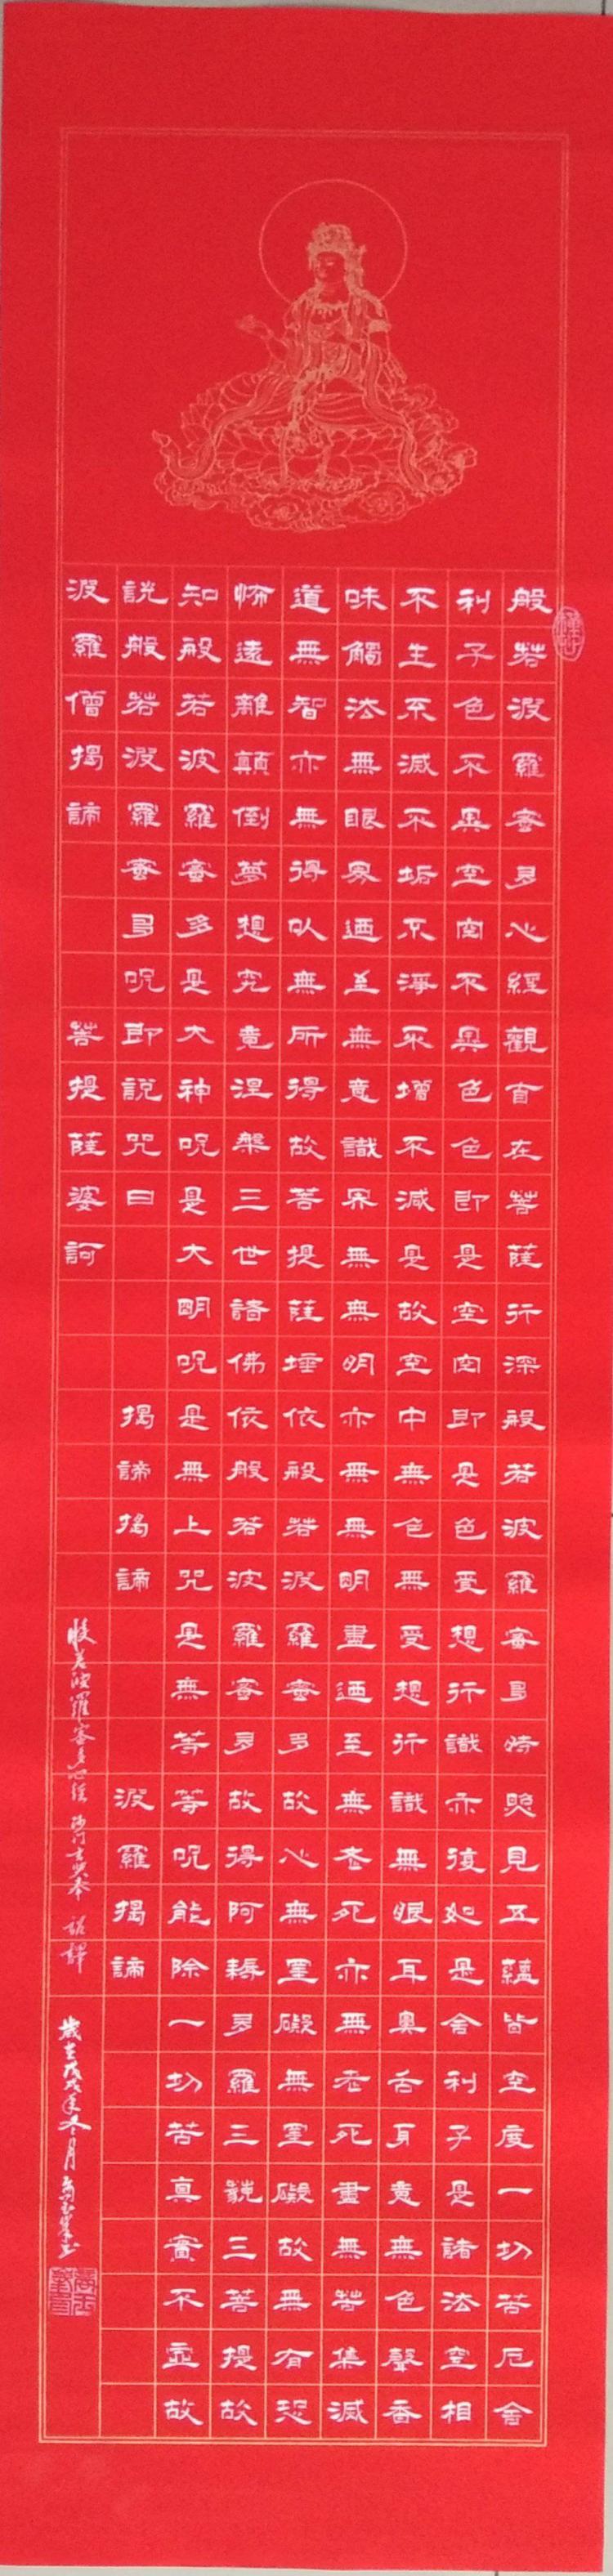 般若波羅蜜多心經觀自在菩薩行深般若波羅蜜多時照見五蘊皆空度一切苦厄舍
利子色不異空空不異色色即是空空即是色受想行識亦復如是舍利子是諸法空相
不生不滅不垢不淨不增不減是故空中無色無受想行識無眼耳鼻舌身意無色聲香
味觸法無眼界迺至無意識界無無明亦無無明盡迺至無老死亦無老死盡無苦集滅
道無智亦無得以無所得故菩提薩埵依般若波羅蜜多故心無罣礙無罣礙故無有恐
怖遠離顛倒夢想究竟涅槃三世諸佛依般若波羅蜜多故得阿耨多羅三藐三菩提故
知般若波羅蜜多是大神呪是大明呪是無上咒是無等等呪能除一切苦真實不虛故
說般若波羅蜜多呪即說咒曰 揭諦揭諦 波羅揭諦
波羅僧揭諦 菩提薩婆訶 般若波羅蜜多心經 沙門玄奘奉 詔譯 歲在戊戌年冬月